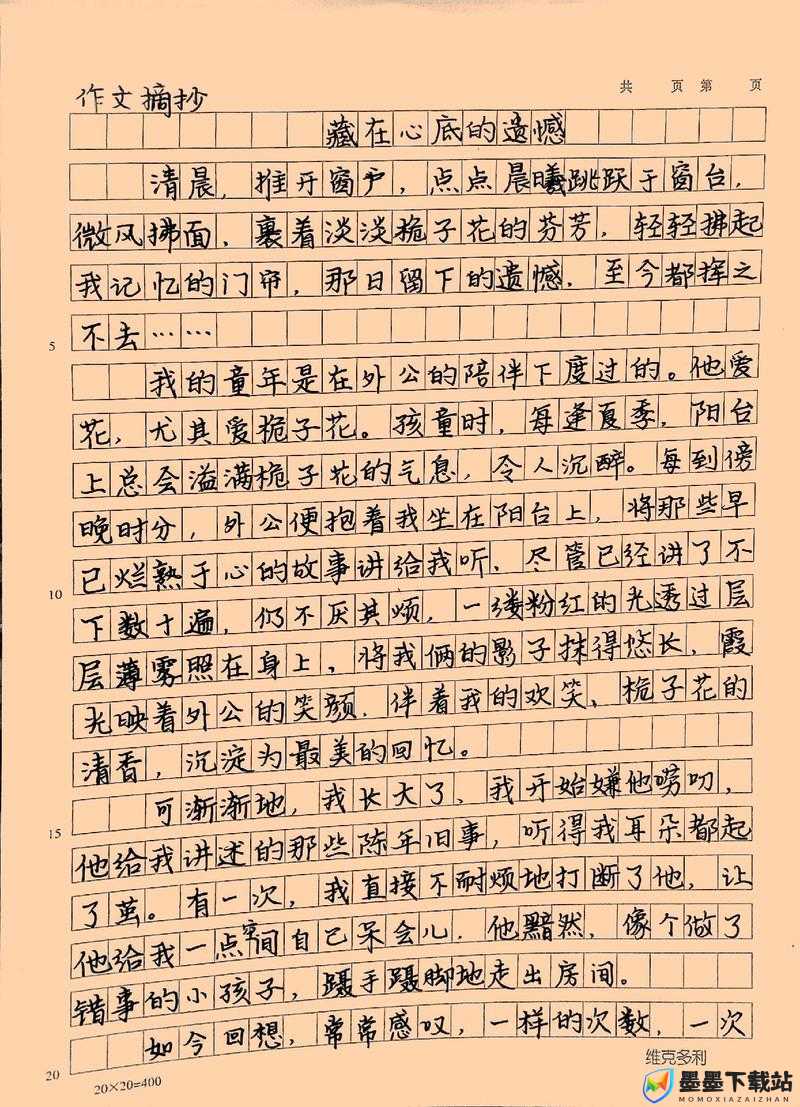 作文摘抄
共 页 第 页
藏在心底的遗憾
清晨，推开窗户，点点晨曦跳跃于窗台，
微风拂面，裹着淡淡桅子花的芬芳，轻轻拂起
我记忆的门帘，那日留下的遗憾，至今都挥之
5
不去……
我的童年是在外公的陪伴下度过的。他爱
花，尤其爱桅子花。孩童时，每逢夏季，阳台
上总会溢满桅子花的气息，令人沉醉。每到傍
晚时分，外公便抱着我坐在阳台上，将那些早
已烂熟于心的故事讲给我听、尽管已经讲了不
10
下数十遍，仍不厌其烦，一缕粉红的光透过层
层薄雾照在身上，将我俩的影子抹得悠长，霞
光映着外公的笑颜，伴着我的欢笑、桅子花的
清香，沉淀为最美的回忆。
可渐渐地，我长大了、我开始嫌他唠叨，
15
他给我讲述的那些陈年旧事，听得我耳朵都起
了茧。有一次，我直接不耐烦地打断了他，让
他给我一点空间自己呆会儿，他黯然，像个做了
错事的小孩子，蹑手蹑脚地走出房间。
如今回想，常常感叹，一样的次数，一次
20
20×20=400
维克多利
墨墨下载站
MOMOXIAZAIZHAN